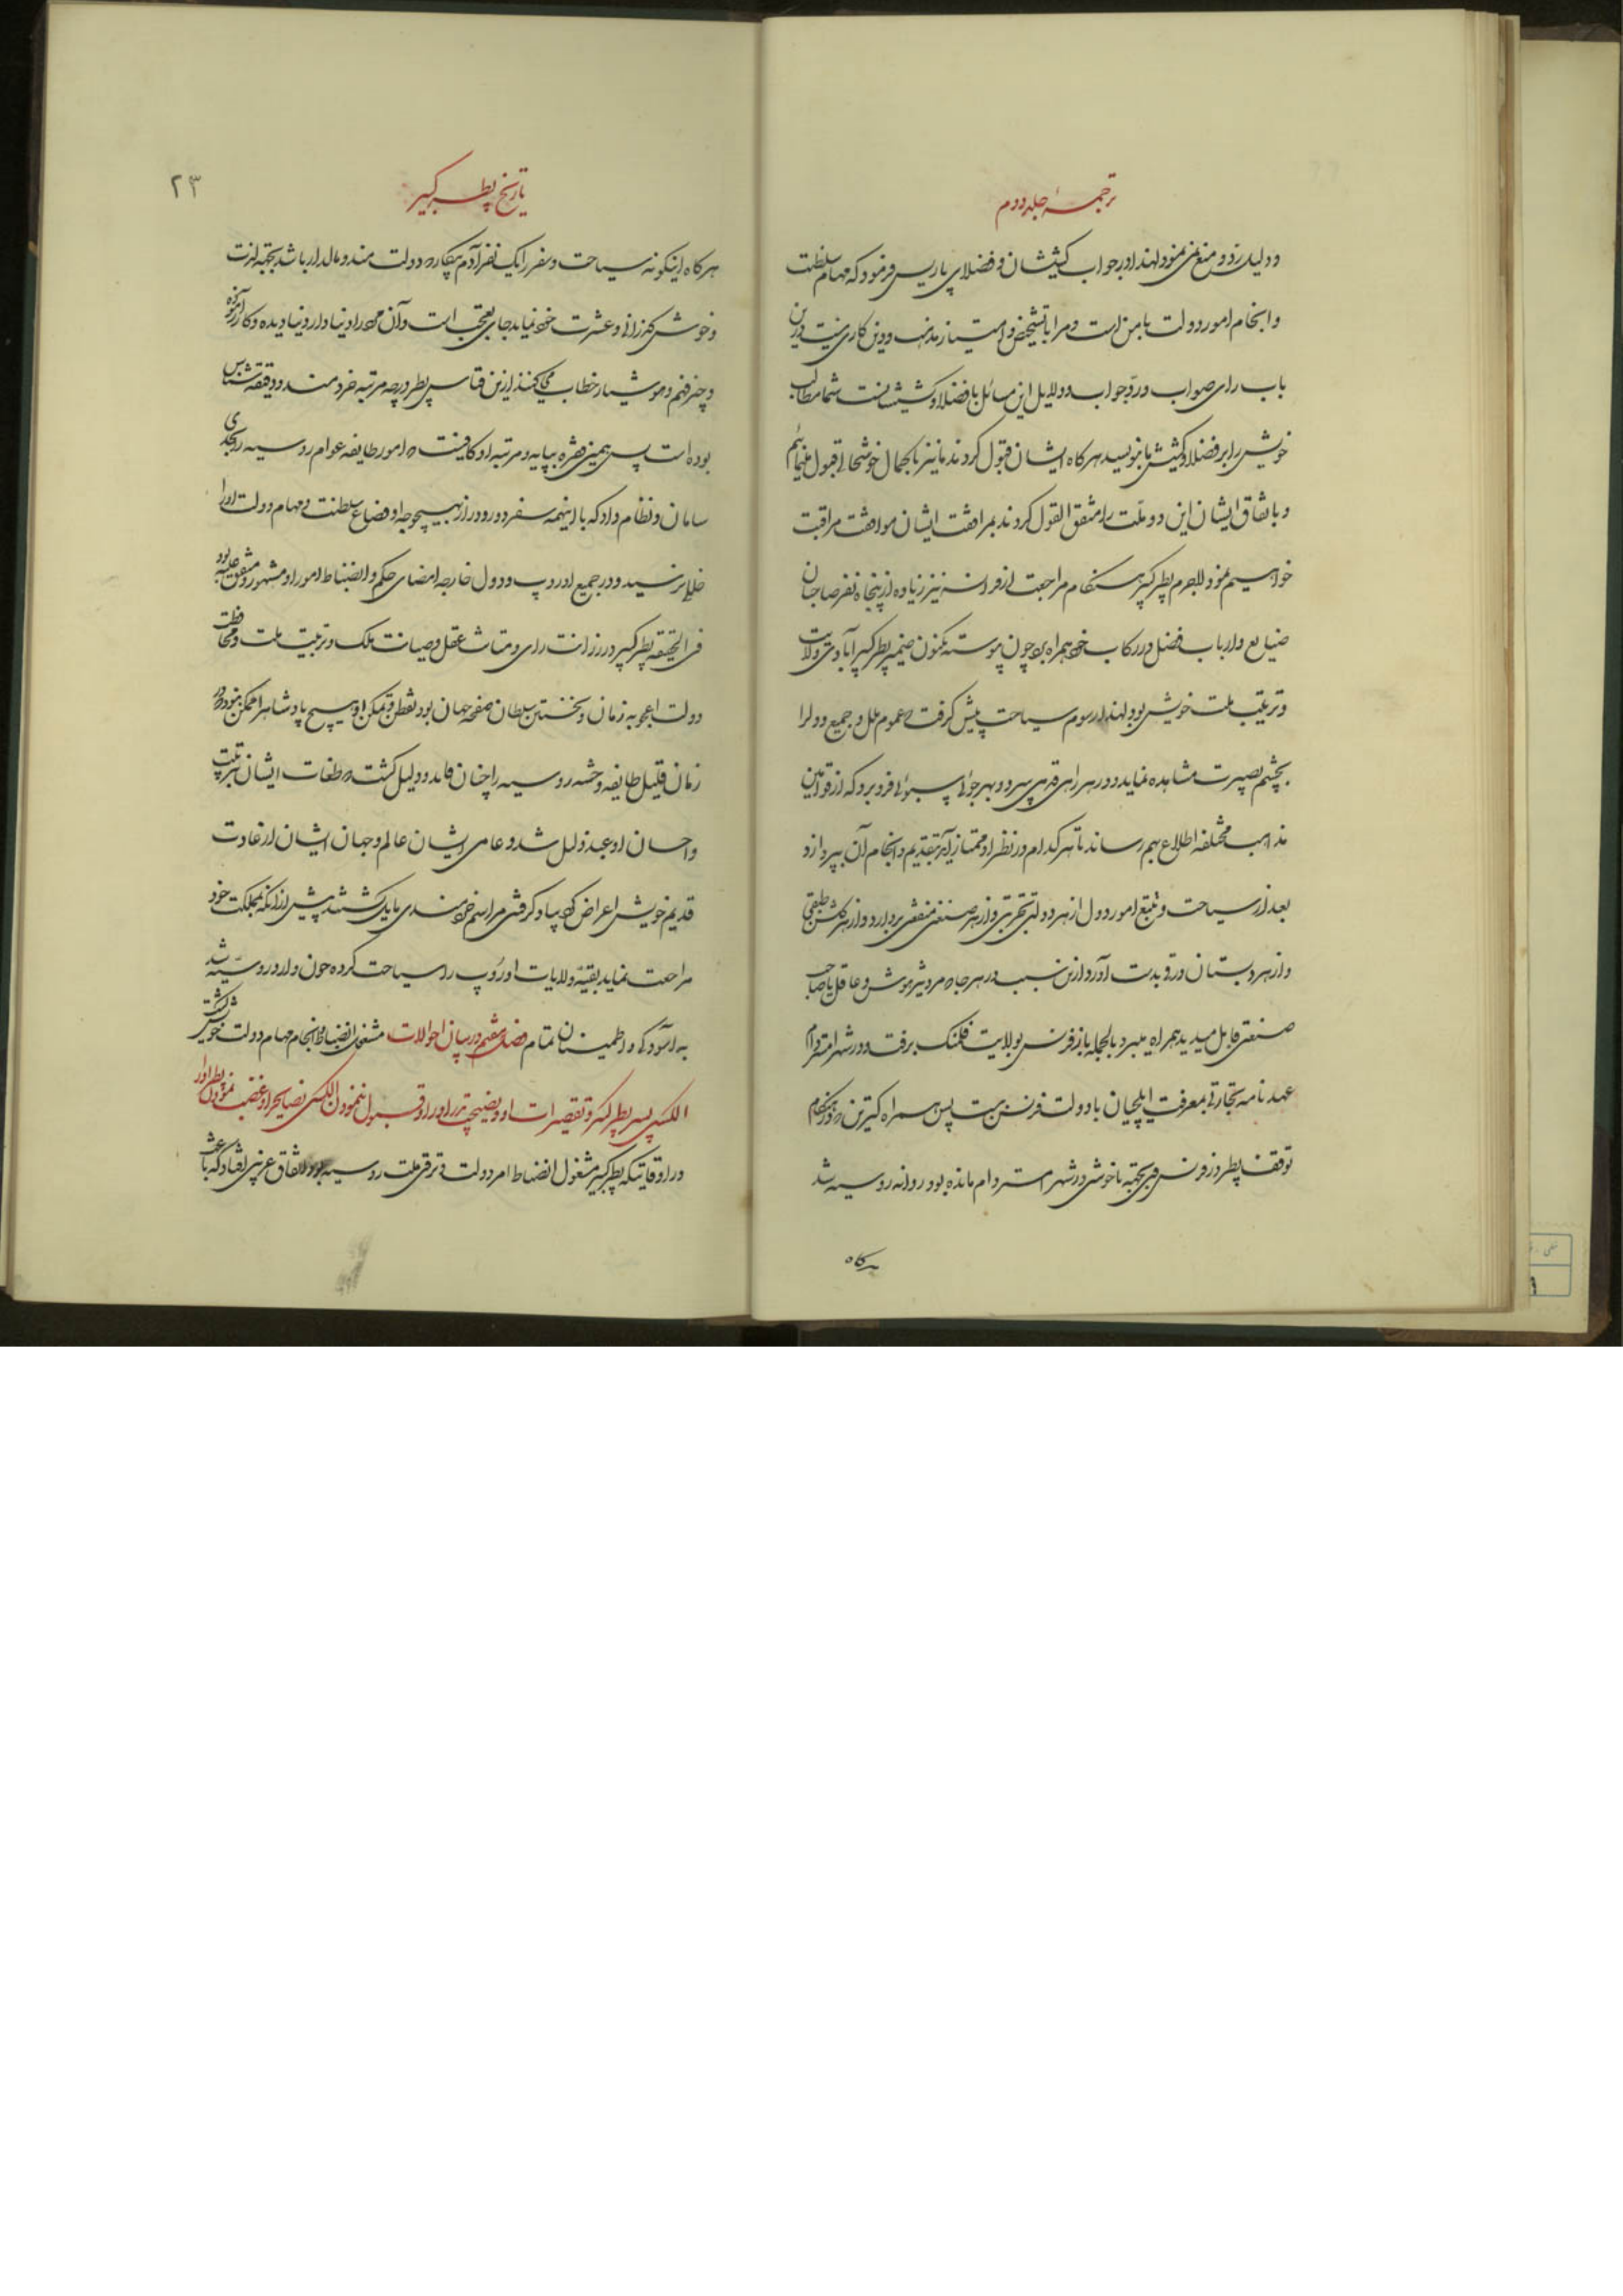 ترجمهٔ جلد دوم
و دلیل رد و منع نمی نمود لهذا در جواب کشیشان و فضلای پاریس فرمود که مهام سلطنت
و انجام امور دولت با من است و مرا با تشخیص و امتیاز مذهب و دین کاری نیست درین
باب رای صواب و رد جواب و دلایل این مسائل با فضلا و کشیشانست شما مطالب
خویش را بر فضلا و کشیش ما بنویسید هرگاه ایشان قبول کردند ما نیز با کمال خوشحالی قبول مینمائیم
و باتفاق ایشان این دو ملت را متفق القول کردند بمرافقت ایشان موافقت مراقبت
خواهیم نمود للجرم پطر کبیر هنگام مراجعت از فرانسه نیز زیاده از پنجاه نفر صاحبان
صنایع و ارباب فضل در رکاب خود همراه برد چون پیوسته مکنون ضمیر پطر کبیر آبادی ولایت
و تربیت ملت خویش بود لهذا رسوم سیاحت پیش گرفت که عموم ملل و جمیع دول را
بچشم بصیرت مشاهده نماید و در هر راهی قدمی سپرد و بهر جوئی سبوئی فرو برد که از قوانین
مذاهب مختلفه اطلاع بهم رساند تا هر کدام در نظر او ممتاز آید بتقدیم و انجام آن بپردازد
بعد از سیاحت و تتبع امور دول از هر دولتی تجربتی و از هر صنعتی منفعتی بردارد و از هر گلشن
و از هر دبستان بدست آورد ازین سبب در هر جا که مرد با هوش و عاقل یا صاحب
صنعتی قابل میدید همراه میبرد بالجمله باز از فرنس بولایت فلمنک برفت و در شهر امستردام
عهدنامه تجارتی بمعرفت ایلچیان با دولت فرنس بست پس همراه کترین که در هنگام
توقف پطر در فرنس وی بجهة ناخوشی در شهر امستردام مانده بود روانه روسیه شد
هرگاه
تاریخ پطر کبیر
۲۳
هرگاه اینگونه سیاحت و سفر را یک نفر آدم بیکاره دولتمند و مالدار باشد بجهة لذت
و خوش گذرانی و عشرت خود نماید جای تعجب است و آن مرد را دنیا دار و دنیا دیده و کار آزموده
و چیز فهم و هوشیار خطاب می کنند ازین قیاس پطر در چه مرتبه خردمند و دقیقه شناس
بوده است پس همین فقره بپایه و مرتبه او کافیست که امور طایفه عوام روسیه را بحدی
سامان و نظام داد که با اینهمه سفر دور و دراز بهیچوجه اوضاع سلطنت و مهام دولت او را
خللی نرسید و در جمیع اوروپ و دول خارجه امضای حکم و انضباط امور او مشهور و متفق علیه بود
فی الحقیقه پطر کبیر در رزانت رای و متانت عقل و صیانت ملک و تربیت ملت و محافظت
دولت اعجوبه زمان و نخستین سلطان صفحه جهان بود تفطن و تمکن او هیچ پادشاه را ممکن نبود در
زمان قلیل طایفه وحشه روسیه را چنان قاید و دلیل گشت که طغات ایشان بتربیت
و احسان او عبد ذلیل شد و عامی ایشان عالم و جهان ایشان از عادت
قدیم خویش اعراض کرده بیاد گرفتن مراسم خردمندی مایل گشتند پیش از آنکه بمملکت خود
مراجعت نماید بقیه ولایات اوروپ را سیاحت کرده چون وارد روسیه شد
به آسودگی و اطمینان تمام مشغول انضباط و انجام مهام دولت خویش گشت فصل هفتم در بیان احوالات
الکسی پسر پطر کبیر و تقصیرات او و نصیحت پدر او را و قبول ننمودن الکسی نصایح را و غضب نمودن پطر او را
در اوقاتیکه پطر کبیر مشغول انضباط امر دولت و ترقی ملت روسیه بود اتفاق غریبی افتاد که باعث